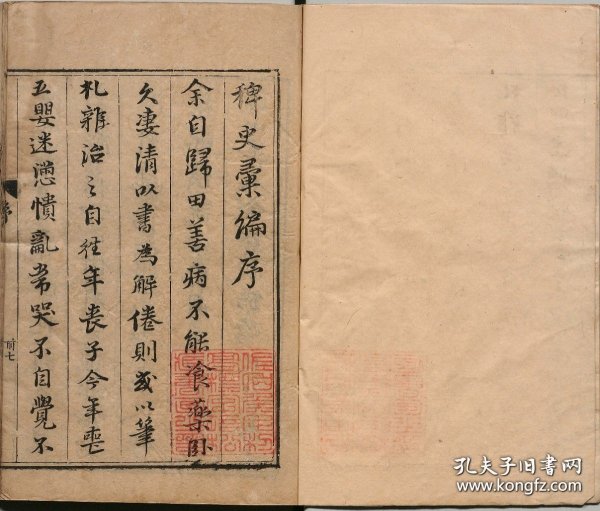 稗史彙編序
余自歸田善病不能食藥卧
久凄清以書為解倦則或以筆
札雜治之自往年喪子今年喪
五嬰迷懣憒亂常哭不自覺不
序
孔夫子旧书网
www.kongfz.com